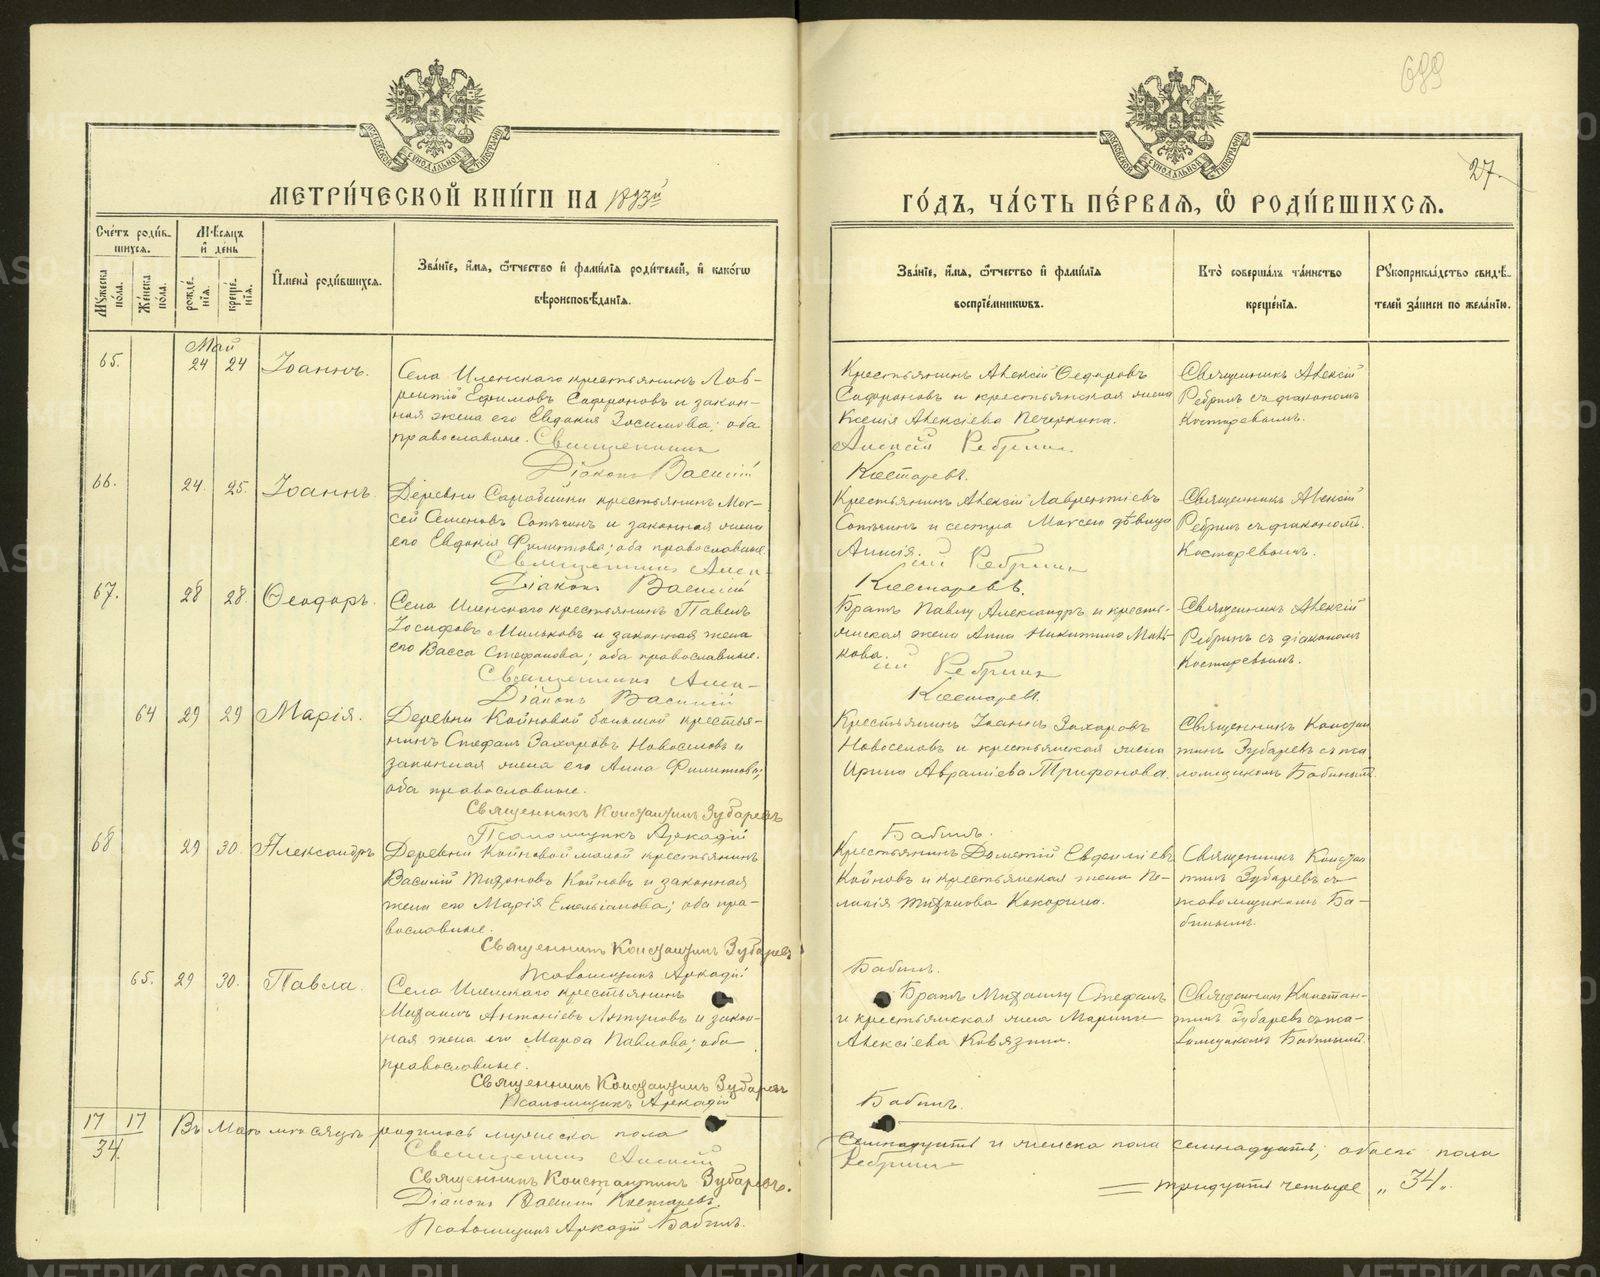 689
27.
МЕТРИ́ЧЕСКОЙ КНИ́ГИ НА 1893й
ГО́ДЪ, ЧА́СТЬ ПЕ́РВАЯ, Ѡ РОДИ́ВШИХСЯ.
Сче́тъ роди́в-
шихся.
Мѣсяцъ
и де́нь
Му́жеска по́ла.
Же́нска по́ла.
рожде́нїя.
креще́нїя.
Имена̀ роди́вшихся.
Зва́нїе, и́мя, ѻ҆́тчество и фами́лїя роди́телей, и како́гѡ
вѣроисповѣ́данїя.
Зва́нїе, и́мя, ѻ҆́тчество и фами́лїя
воспрїе́мникѡвъ.
Кто̀ соверша́лъ та́инство
креще́нїя.
Рꙋкоприкла́дство свидѣ́-
телей за́писи по жела́нїю.
Май
65. 24 24 Іоаннъ.
Села Иленскаго крестьянинъ Лав-
рентій Ефимовъ Сафроновъ и закон-
ная жена его Евдокія Зосимова; оба
православные. Священникъ
Діаконъ Василій
Крестьянинъ Алексій Ѳедоровъ
Сафроновъ и крестьянская жена
Ксенія Алексіева Печеркина.
Алексій Ребринъ
Костаревъ.
Священникъ Алексій
Ребринъ съ діакономъ
Костаревымъ.
66. 24. 25. Іоаннъ.
Деревни крестьянинъ Мок-
сей Семеновъ и законная жена
его Евдокія Филиппова; оба православные.
Священникъ Алек-
Діаконъ Василій
Крестьянинъ Алексій Лаврентіевъ
и сестра дѣвица
Анисія.
сій Ребринъ
Костаревъ.
Священникъ Алексій
Ребринъ съ діакономъ
Костаревымъ.
67. 28 28. Ѳеодоръ.
Села Иленскаго крестьянинъ Павелъ
Іосифовъ Мильковъ и законная жена
его Васса Стефанова; оба православные.
Священникъ Алек-
Діаконъ Василій
Братъ Павлу Александръ и кресть-
янская жена Анна Никитина Миль-
кова.
сій Ребринъ
Костаревъ.
Священникъ Алексій
Ребринъ съ діакономъ
Костаревымъ.
64 29 29 Марія.
Деревни Койновой большой крестья-
нинъ Стефанъ Захаровъ Новоселовъ и
законная жена его Анна Филиппова;
оба православные.
Священникъ Константинъ Зубаревъ
Псаломщикъ Аркадій
Крестьянинъ Іоаннъ Захаровъ
Новоселовъ и крестьянская жена
Ирина Авраміева Трифонова.
Бабинъ.
Священникъ Констан
тинъ Зубаревъ съ пса
ломщикомъ Бабинымъ.
68 29 30. Александръ
Деревни Койновой малой крестьянинъ
Василій Тихоновъ Койновъ и законная
жена его Марія Емельянова; оба пра-
вославные.
Священникъ Константинъ Зубаревъ
Псаломщикъ Аркадій
Крестьянинъ Дометій Евгеніевъ
Койновъ и крестьянская жена Пе-
лагія Тихонова Кокорина.
Бабинъ.
Священникъ Констан
тинъ Зубаревъ съ
псаломщикомъ Ба-
бинымъ.
65. 29 30. Павла.
Села Иленскаго крестьянинъ
Михаилъ Антоніевъ Ляпуновъ и закон-
ная жена его Марѳа Павлова; оба
православные.
Священникъ Константинъ Зубаревъ
Псаломщикъ Аркадій
Братъ Михаилу Стефанъ
и крестьянская жена Марина
Алексіева Ковязина.
Бабинъ.
Священникъ Констан-
тинъ Зубаревъ съ пса-
ломщикомъ Бабинымъ.
17 17
34.
Въ Маѣ мѣсяцѣ родилось мужеска пола семнадцать и женска пола семнадцать; обоего пола
тридцать четыре „34„.
Священникъ Алексій Ребринъ
Священникъ Константинъ Зубаревъ.
Діаконъ Василій Костаревъ.
Псаломщикъ Аркадій Бабинъ.
METRIKI.GASO-URAL.RU